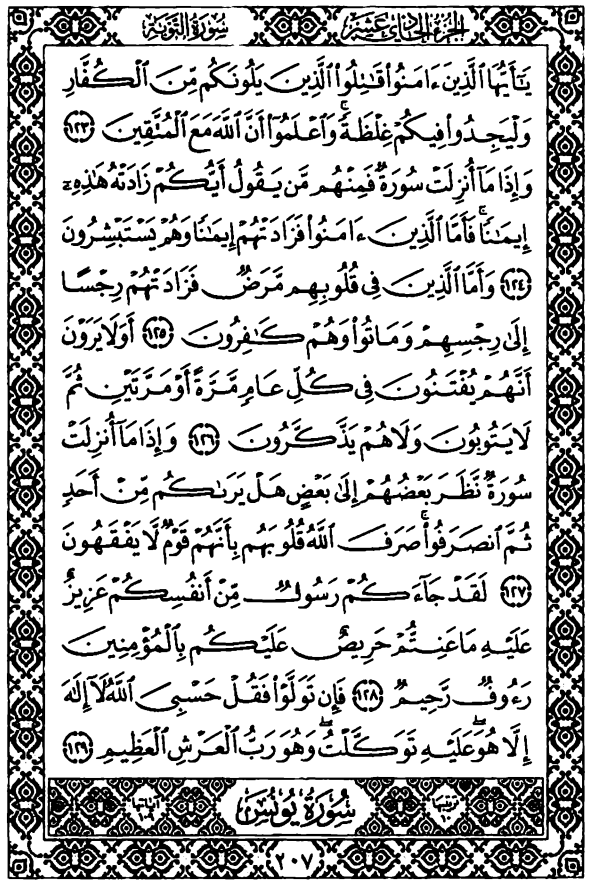 سُورَةُ التَّوْبَةِ
الجُزْءُ الحَادِي عَشَرَ
يَٰٓأَيُّهَا ٱلَّذِينَ ءَامَنُوا۟ قَٰتِلُوا۟ ٱلَّذِينَ يَلُونَكُم مِّنَ ٱلْكُفَّارِ
وَلْيَجِدُوا۟ فِيكُمْ غِلْظَةً ۚ وَٱعْلَمُوٓا۟ أَنَّ ٱللَّهَ مَعَ ٱلْمُتَّقِينَ ١٢٣
وَإِذَا مَآ أُنزِلَتْ سُورَةٌ فَمِنْهُم مَّن يَقُولُ أَيُّكُمْ زَادَتْهُ هَٰذِهِۦٓ
إِيمَٰنًا ۚ فَأَمَّا ٱلَّذِينَ ءَامَنُوا۟ فَزَادَتْهُمْ إِيمَٰنًا وَهُمْ يَسْتَبْشِرُونَ
١٢٤ وَأَمَّا ٱلَّذِينَ فِى قُلُوبِهِم مَّرَضٌ فَزَادَتْهُمْ رِجْسًا
إِلَىٰ رِجْسِهِمْ وَمَاتُوا۟ وَهُمْ كَٰفِرُونَ ١٢٥ أَوَلَا يَرَوْنَ
أَنَّهُمْ يُفْتَنُونَ فِى كُلِّ عَامٍ مَّرَّةً أَوْ مَرَّتَيْنِ ثُمَّ
لَا يَتُوبُونَ وَلَا هُمْ يَذَّكَّرُونَ ١٢٦ وَإِذَا مَآ أُنزِلَتْ
سُورَةٌ نَّظَرَ بَعْضُهُمْ إِلَىٰ بَعْضٍ هَلْ يَرَىٰكُم مِّنْ أَحَدٍ
ثُمَّ ٱنصَرَفُوا۟ ۚ صَرَفَ ٱللَّهُ قُلُوبَهُم بِأَنَّهُمْ قَوْمٌ لَّا يَفْقَهُونَ
١٢٧ لَقَدْ جَآءَكُمْ رَسُولٌ مِّنْ أَنفُسِكُمْ عَزِيزٌ
عَلَيْهِ مَا عَنِتُّمْ حَرِيصٌ عَلَيْكُم بِٱلْمُؤْمِنِينَ
رَءُوفٌ رَّحِيمٌ ١٢٨ فَإِن تَوَلَّوْا۟ فَقُلْ حَسْبِىَ ٱللَّهُ لَآ إِلَٰهَ
إِلَّا هُوَ ۖ عَلَيْهِ تَوَكَّلْتُ ۖ وَهُوَ رَبُّ ٱلْعَرْشِ ٱلْعَظِيمِ ١٢٩
ترتيبها ١٠
سُورَةُ يُونُسَ
آياتها ١٠٩
٢٠٧